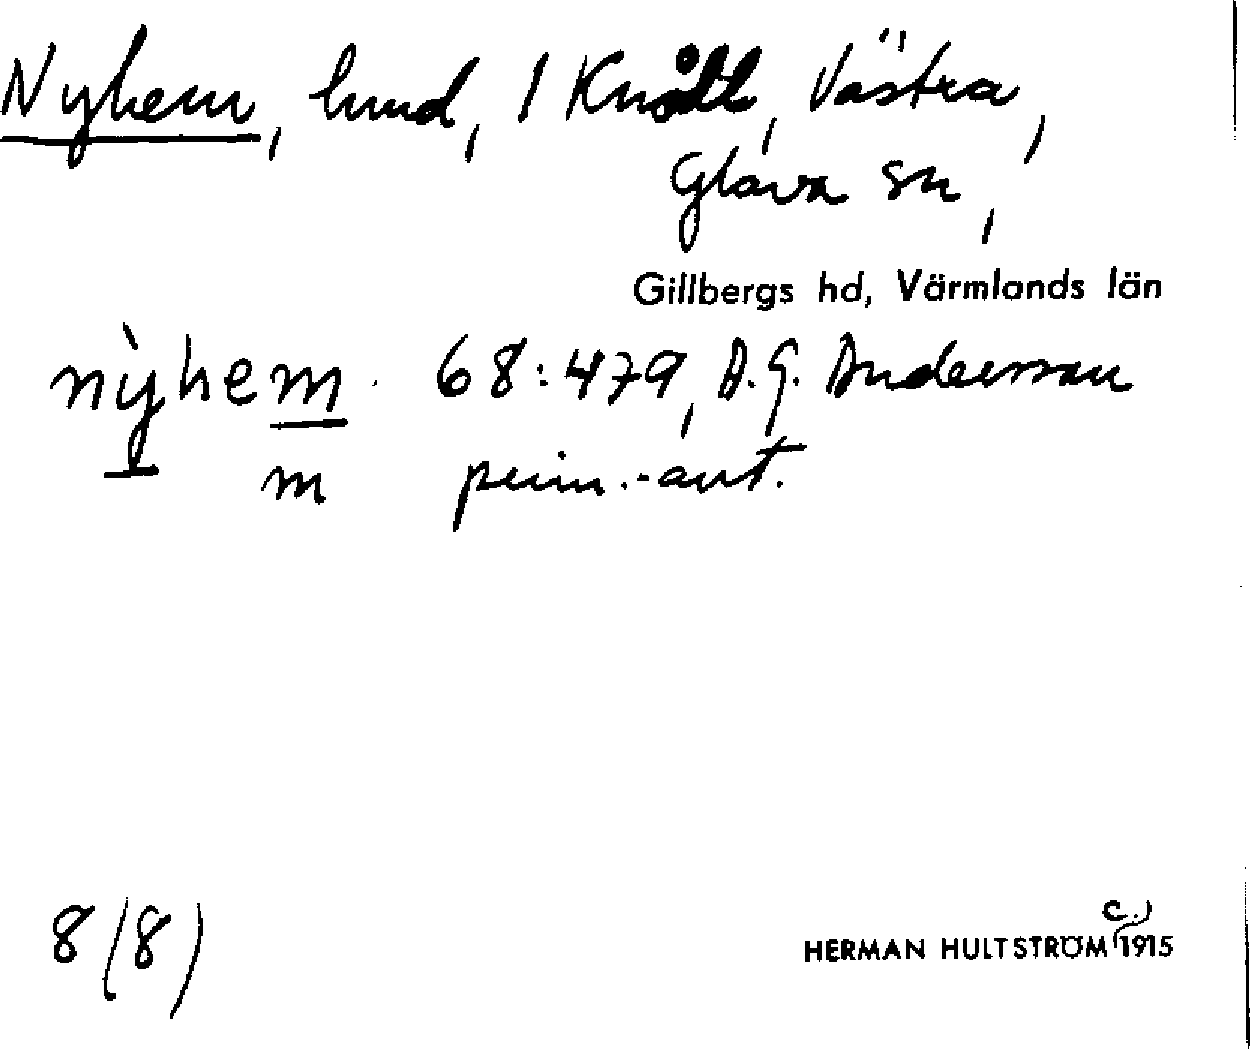 Nyhem, hmd, 1 Knöttl, Västra,
Glava sn,
Gillbergs hd, Värmlands län
nỳhem. 68:479, A.G. Andersson
m prim.-ant.
8(8)
c.)
HERMAN HULTSTRÖM 1915